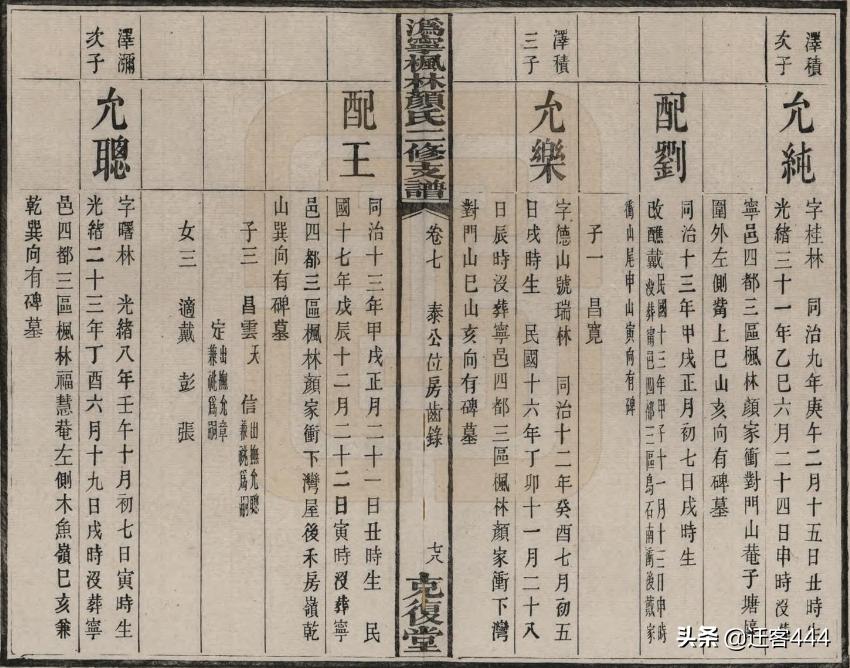 澤積次子
允純
字桂林　同治九年庚午二月十五日丑時生
光緒三十一年乙巳六月二十四日申時沒葬
寧邑四都三區楓林顏家衝對門山菴子塘墈
圍外左側嘴上巳山亥向有碑墓
配劉
同治十三年甲戌正月初七日戌時生
改醮戴民國十三年甲子十一月十三日申時
沒葬甯邑四都三區烏石南衝後戴家
衝山尾申山寅向有碑
子一　昌寬
澤積三子
允樂
字德山號瑞林　同治十二年癸酉七月初五
日戌時生　民國十六年丁卯十一月二十八
日辰時沒葬寧邑四都三區楓林顏家衝下灣
對門山巳山亥向有碑墓
溈寧楓林顏氏二修支譜
卷七　泰公位房齒錄
七八
克復堂
配王
同治十三年甲戌正月二十一日丑時生　民
國十七年戊辰十二月二十二日寅時沒葬寧
邑四都三區楓林顏家衝下灣屋後禾房嶺乾
山巽向有碑墓
子三　昌雲　天　信出撫允聰兼祧爲嗣
定出撫允章兼祧爲嗣
女三　適戴　彭　張
澤瀰次子
允聰
字曙林　光緒八年壬午十月初七日寅時生
光緒二十三年丁酉六月十九日戌時沒葬寧
邑四都三區楓林福慧菴左側木魚嶺巳亥兼
乾巽向有碑墓
头条 @迁客444